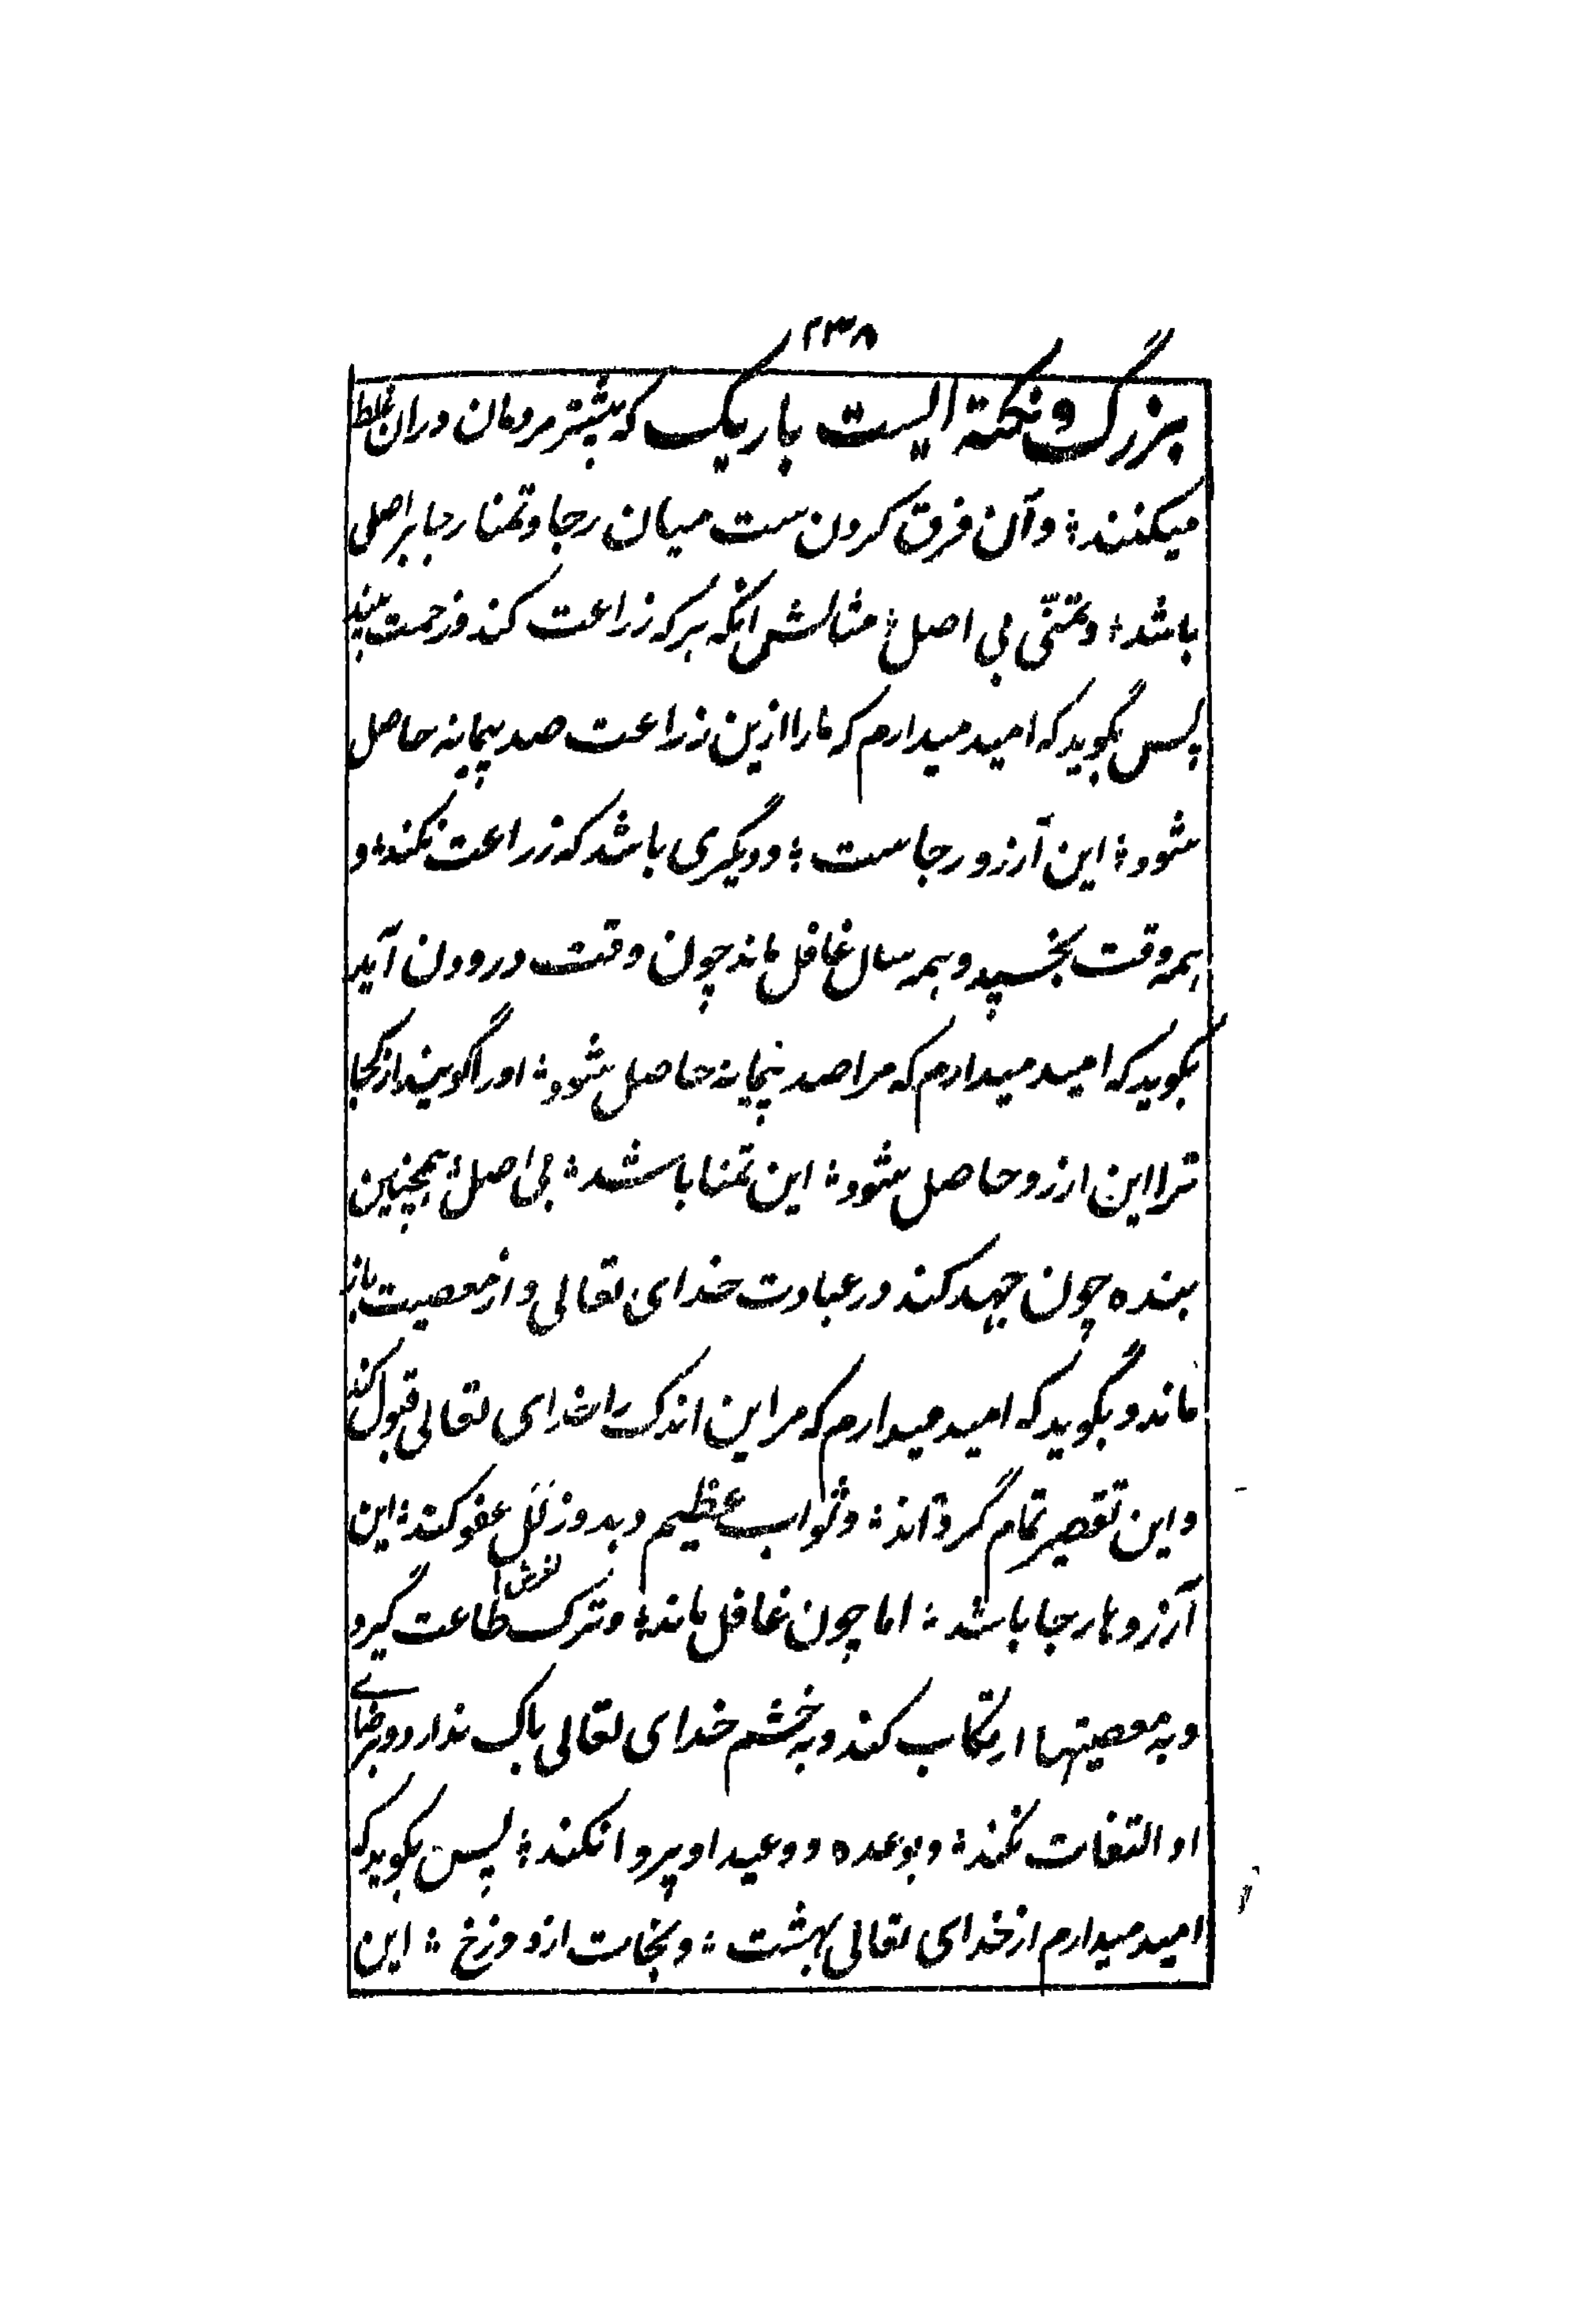 ۲۳۸
بزرگ و نکتهٔ ایست باریک که بیشتر مردمان دران غلط
میکنند؛ و آن فرق کردن ست میان رجا و تمنا رجا بر اصلی
باشد؛ و تمنّی بی اصل؛ مثالش انکه هر که زراعت کند و زحمت بیند
پس بگوید که امید میدارم که مارا ازین زراعت صد پیمانه حاصل
شود؛ این آرزو رجاست؛ و دیگری باشد که زراعت نکند؛ و
همه وقت بخسپد و همه سال غافل ماند چون وقت درودن آید
بگوید که امید میدارم که مرا صد پیمانه حاصل شود؛ اورا گویند از کجا
ترا این ارزو حاصل شود؛ این تمنا باشد؛ بی اصل؛ همچنین
بنده چون جهد کند در عبادت خدای تعالی و از معصیت باز
ماند و بگوید که امید میدارم که مر این اندک را خدای تعالی قبول کند
و این تقصیر تمام گرداند؛ و ثواب عظیم دهد و زلل عفو کند؛ این
لغزش
آرزوها رجا باشد؛ اما چون غافل ماند؛ و ترک طاعت گیرد
و به معصیتها ارتکاب کند و به خشم خدای تعالی باک ندارد و برضای
او التفات نکند؛ و بوعده و وعید او پروا نکند؛ پس بگوید که
امید میدارم از خدای تعالی بهشت؛ و نجات از دوزخ؛ این